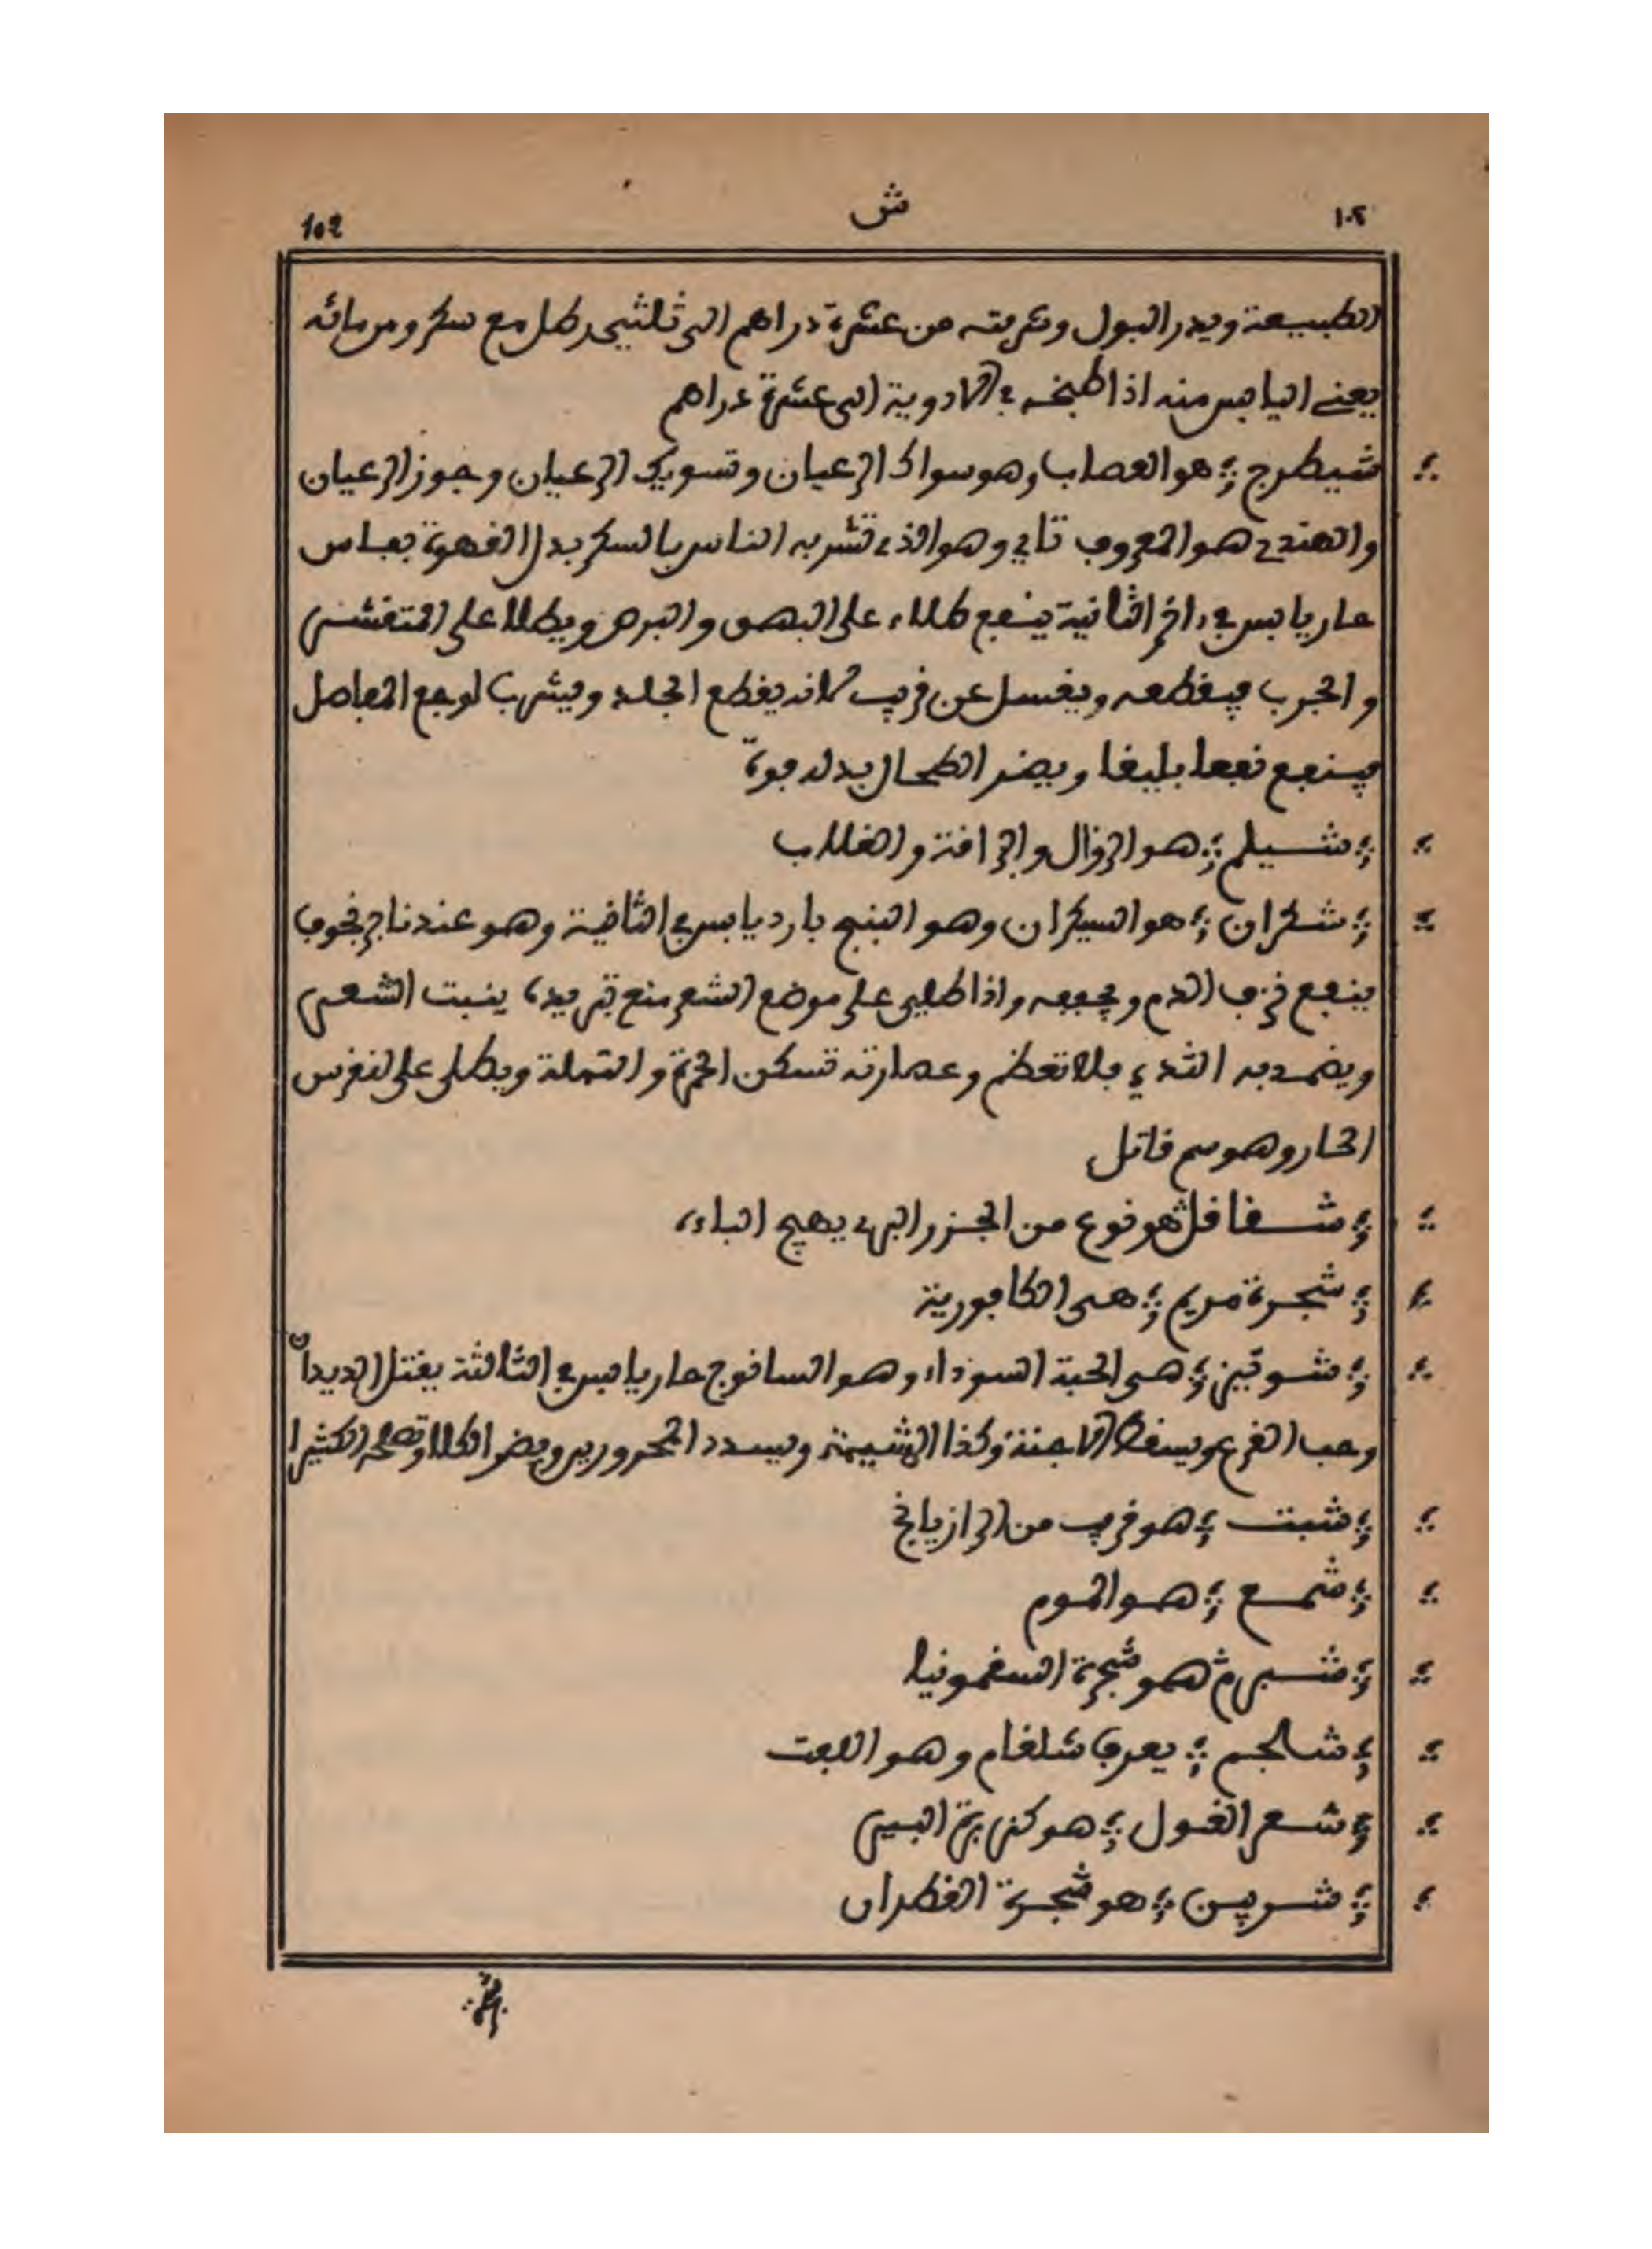 ١٠٢ ش 102
الطبيعة ويدر البول وشربته من عشرة دراهم الى ثلثي رطل مع سكر ومن مائه
يعني اليابس منه اذا طبخ في الادوية الى عشرة دراهم
شيطرج ؛ هو العصاب وهو سواك الرعيان وتسويك الرعيان وجوز الرعيان
والهندي هو المعروف تاي وهو الذي تشربه الناس بالسكر بدل القهوة بفاس
حار يابس في اخر الثانية ينفع طلاء على البهق والبرص ويطلا على المتقشر
والجرب فيقطعه ويغسل عن قريب لانه يقطع الجلد ويشرب لوجع المفاصل
فينفع نفعا بليغا ويضر الطحال بدله فوة
؛ شيلم ؛ هو الزوال والزافة والغلاب
؛ شكران ؛ هو السيكران وهو البنج بارد يابس في الثانية وهو عندنا
ينفع نزف الدم ويجففه واذا طلي على موضع الشعر منع تبريده ينبت الشعر
ويضمد به الثدي فلا تعظم وعصارته تسكن الحمرة والنملة ويطلى على النقرس
الحار وهو سم قاتل
؛ شقاقل هو نوع من الجزر البري يهيج الباءة
؛ شجرة مريم ؛ هي الكافورية
؛ شونيز ؛ هي الحبة السوداء وهو السانوج حار يابس في الثالثة يقتل الديدان
وحب القرع ويسقط الاجنة وكذا المشيمة ويسدد المحرورين ويضر الكلا وتصلحه الكثيرا
؛ شبت ؛ هو قريب من الرازيانج
؛ شمع ؛ هو الموم
؛ شبرم هو شجرة السقمونيا
؛ شالجم ؛ يعرف شلغام وهو اللفت
؛ شعر الغول ؛ هو كزبرة البير
؛ شربين ؛ هو شجرة القطران